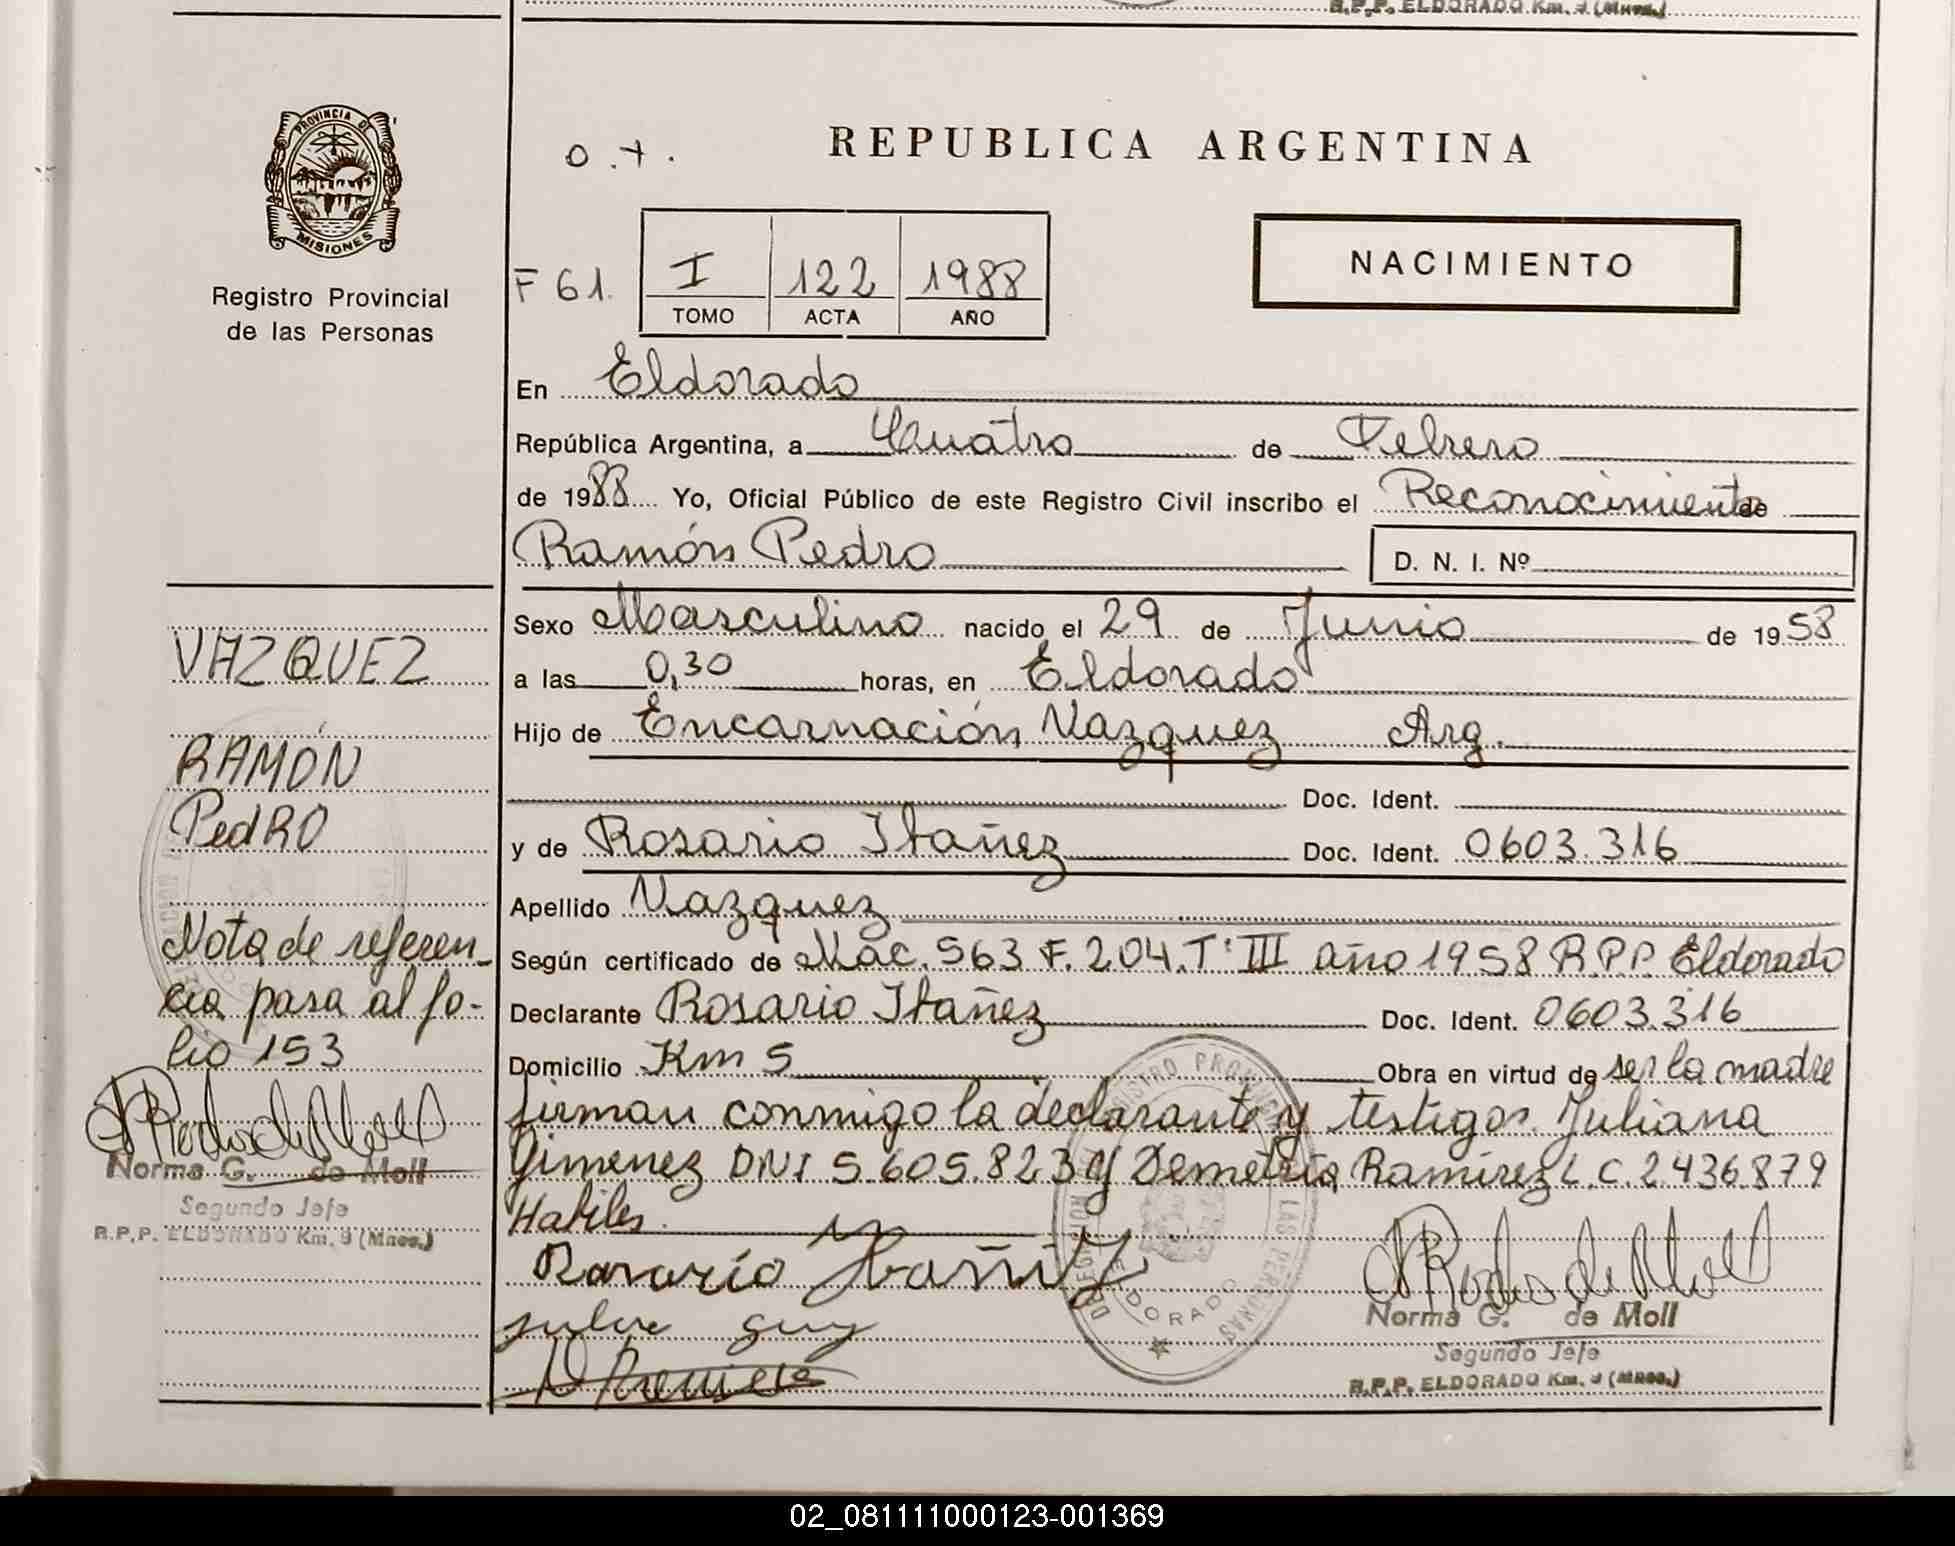 R.P.P. ELDORADO Km. 9 (Mnes.)
PROVINCIA DE
MISIONES
Registro Provincial
de las Personas
O.+.
REPUBLICA ARGENTINA
F 61.
I 122 1988
TOMO ACTA AÑO
NACIMIENTO
En Eldorado
República Argentina, a Cuatro de Febrero
de 1988 Yo, Oficial Público de este Registro Civil inscribo el Reconocimiento de
Ramón Pedro D. N. I. Nº
Sexo Masculino nacido el 29 de Junio de 1958
a las 0,30 horas, en Eldorado
Hijo de Encarnación Vazquez Arg.
Doc. Ident.
y de Rosario Ibañez Doc. Ident. 0603.316
Apellido Vazquez
Según certificado de Nac. 563 F. 204. Tº III año 1958 R.P.P. Eldorado
Declarante Rosario Ibañez Doc. Ident. 0603.316
Domicilio Km 5 Obra en virtud de ser la madre
firman conmigo la declarante y testigos Juliana
Gimenez DNI 5.605.823 y Demetria Ramirez L.C. 2.436.879
Habiles.
Rosario Ibañez
Norma G. de Moll
Segundo Jefe
R.P.P. ELDORADO Km. 9 (Mnes.)
ELDORADO
VAZQUEZ
RAMÓN
PedRO
Nota de referen-
cia pasa al fo-
lio 153
Norma G. de Moll
Segundo Jefe
R.P.P. ELDORADO Km. 9 (Mnes.)
02_081111000123-001369